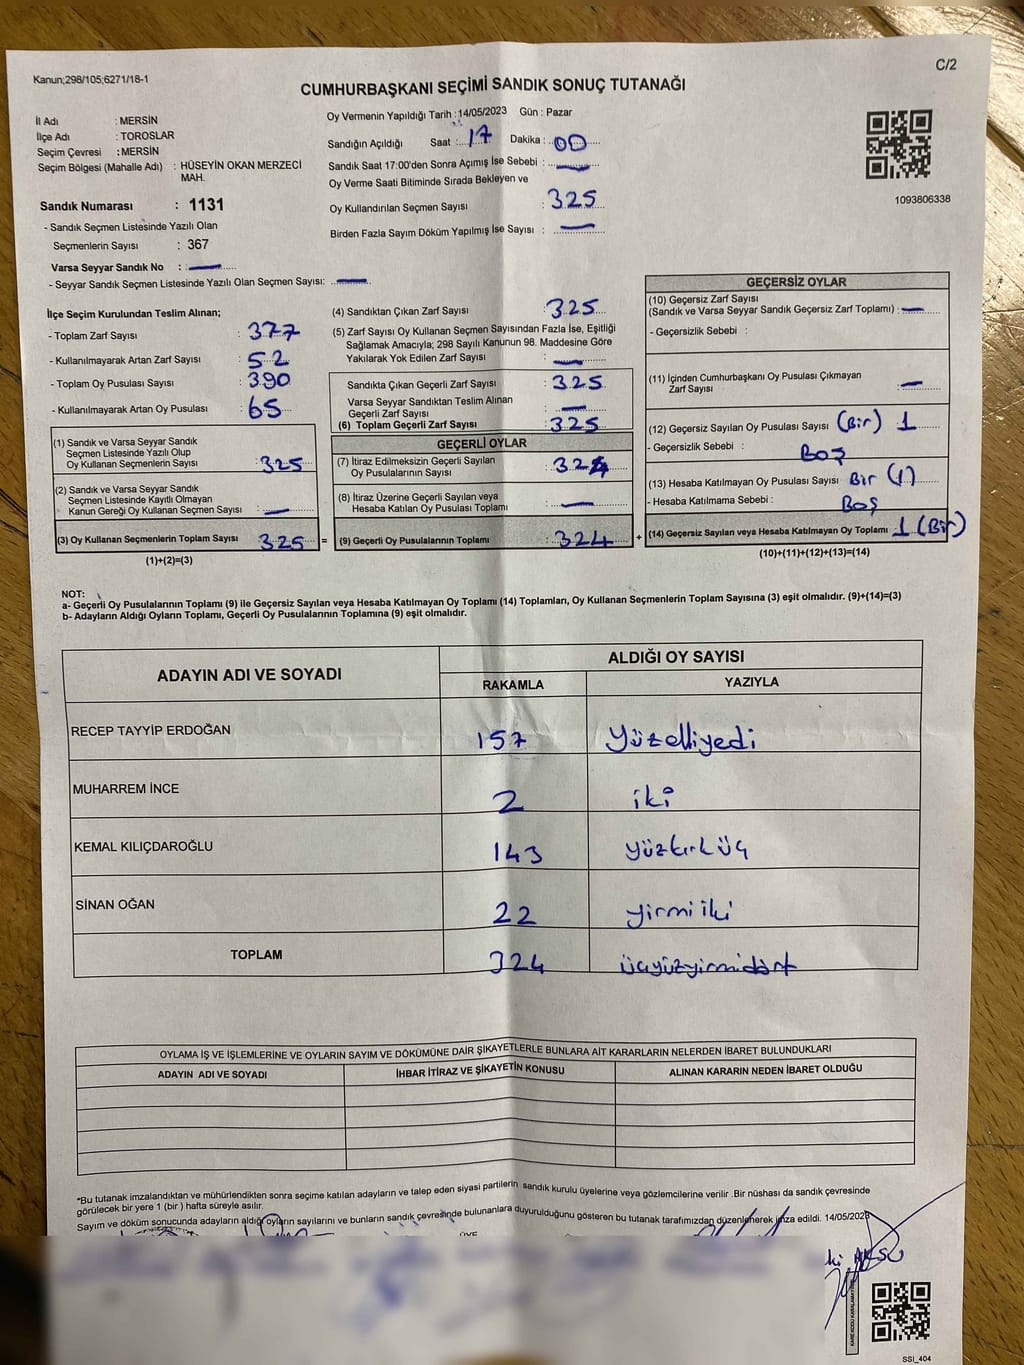 Kanun;298/105;6271/18-1
C/2
CUMHURBAŞKANI SEÇİMİ SANDIK SONUÇ TUTANAĞI
İl Adı : MERSİN
İlçe Adı : TOROSLAR
Seçim Çevresi : MERSİN
Seçim Bölgesi (Mahalle Adı) : HÜSEYİN OKAN MERZECİ
MAH.
Sandık Numarası : 1131
- Sandık Seçmen Listesinde Yazılı Olan
Seçmenlerin Sayısı : 367
Varsa Seyyar Sandık No : —
- Seyyar Sandık Seçmen Listesinde Yazılı Olan Seçmen Sayısı: —
Oy Vermenin Yapıldığı Tarih : 14/05/2023 Gün : Pazar
Sandığın Açıldığı Saat : 17 Dakika : 00
Sandık Saat 17:00'den Sonra Açımış İse Sebebi : —
Oy Verme Saati Bitiminde Sırada Bekleyen ve
Oy Kullandırılan Seçmen Sayısı : 325
Birden Fazla Sayım Döküm Yapılmış İse Sayısı : —
1093806338
İlçe Seçim Kurulundan Teslim Alınan;
- Toplam Zarf Sayısı : 377
- Kullanılmayarak Artan Zarf Sayısı : 52
- Toplam Oy Pusulası Sayısı : 390
- Kullanılmayarak Artan Oy Pusulası : 65
(1) Sandık ve Varsa Seyyar Sandık
Seçmen Listesinde Yazılı Olup
Oy Kullanan Seçmenlerin Sayısı : 325
(2) Sandık ve Varsa Seyyar Sandık
Seçmen Listesinde Kayıtlı Olmayan
Kanun Gereği Oy Kullanan Seçmen Sayısı : —
(3) Oy Kullanan Seçmenlerin Toplam Sayısı : 325 =
(1)+(2)=(3)
(4) Sandıktan Çıkan Zarf Sayısı : 325
(5) Zarf Sayısı Oy Kullanan Seçmen Sayısından Fazla İse, Eşitliği
Sağlamak Amacıyla; 298 Sayılı Kanunun 98. Maddesine Göre
Yakılarak Yok Edilen Zarf Sayısı : —
Sandıkta Çıkan Geçerli Zarf Sayısı : 325
Varsa Seyyar Sandıktan Teslim Alınan
Geçerli Zarf Sayısı : —
(6) Toplam Geçerli Zarf Sayısı : 325
GEÇERLİ OYLAR
(7) İtiraz Edilmeksizin Geçerli Sayılan
Oy Pusulalarının Sayısı : 324
(8) İtiraz Üzerine Geçerli Sayılan veya
Hesaba Katılan Oy Pusulası Toplamı : —
(9) Geçerli Oy Pusulalarının Toplamı : 324 +
GEÇERSİZ OYLAR
(10) Geçersiz Zarf Sayısı
(Sandık ve Varsa Seyyar Sandık Geçersiz Zarf Toplamı) : —
- Geçersizlik Sebebi :
(11) İçinden Cumhurbaşkanı Oy Pusulası Çıkmayan
Zarf Sayısı : —
(12) Geçersiz Sayılan Oy Pusulası Sayısı (Bir) 1
- Geçersizlik Sebebi : Boş
(13) Hesaba Katılmayan Oy Pusulası Sayısı Bir (1)
- Hesaba Katılmama Sebebi : Boş
(14) Geçersiz Sayılan veya Hesaba Katılmayan Oy Toplamı 1 (Bir)
(10)+(11)+(12)+(13)=(14)
NOT:
a- Geçerli Oy Pusulalarının Toplamı (9) ile Geçersiz Sayılan veya Hesaba Katılmayan Oy Toplamı (14) Toplamları, Oy Kullanan Seçmenlerin Toplam Sayısına (3) eşit olmalıdır. (9)+(14)=(3)
b- Adayların Aldığı Oyların Toplamı, Geçerli Oy Pusulalarının Toplamına (9) eşit olmalıdır.
ADAYIN ADI VE SOYADI ALDIĞI OY SAYISI
RAKAMLA YAZIYLA
RECEP TAYYİP ERDOĞAN 157 Yüzelliyedi
MUHARREM İNCE 2 iki
KEMAL KILIÇDAROĞLU 143 yüzkırküç
SİNAN OĞAN 22 yirmiiki
TOPLAM 324 üçyüzyirmidört
OYLAMA İŞ VE İŞLEMLERİNE VE OYLARIN SAYIM VE DÖKÜMÜNE DAİR ŞİKAYETLERLE BUNLARA AİT KARARLARIN NELERDEN İBARET BULUNDUKLARI
ADAYIN ADI VE SOYADI İHBAR İTİRAZ VE ŞİKAYETİN KONUSU ALINAN KARARIN NEDEN İBARET OLDUĞU
*Bu tutanak imzalandıktan ve mühürlendikten sonra seçime katılan adayların ve talep eden siyasi partilerin sandık kurulu üyelerine veya gözlemcilerine verilir .Bir nüshası da sandık çevresinde
görülecek bir yere 1 (bir ) hafta süreyle asılır.
Sayım ve döküm sonucunda adayların aldığı oyların sayılarını ve bunların sandık çevresinde bulunanlara duyurulduğunu gösteren bu tutanak tarafımızdan düzenlenerek imza edildi. 14/05/2023
SSİ_404